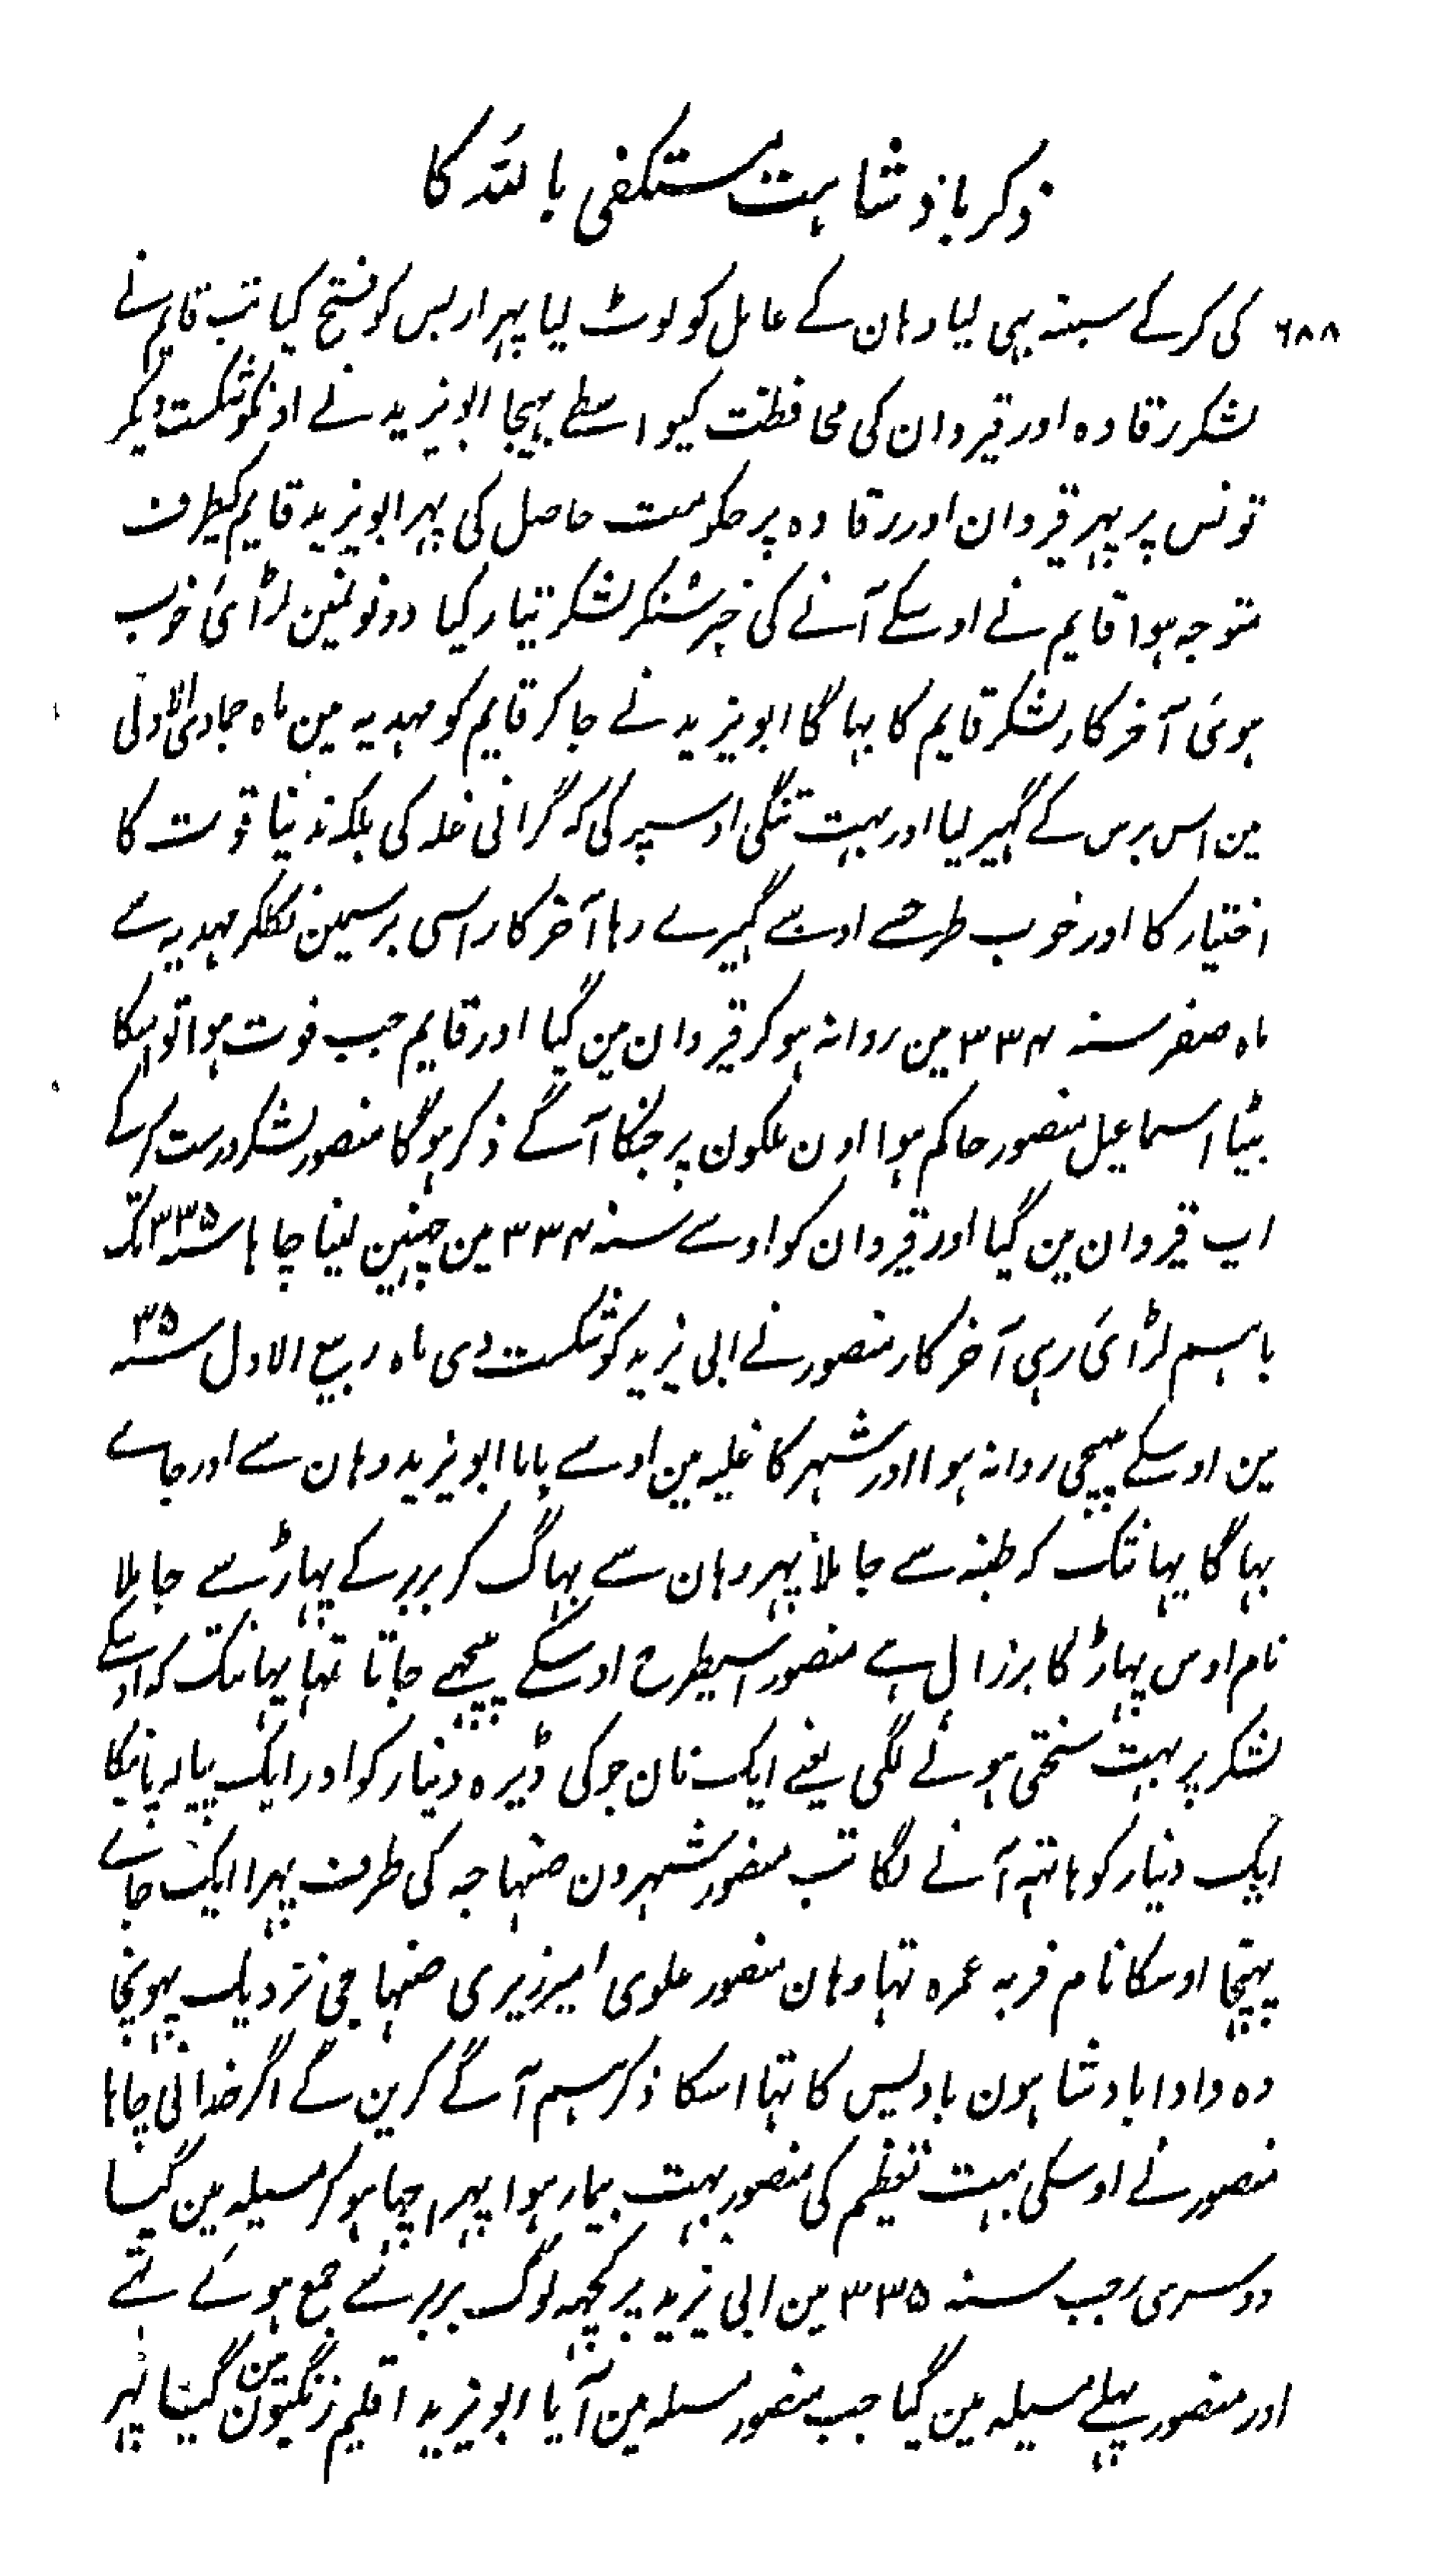 ذکر بادشاہت مستکفی باللہ کا
۶۸۸
کی کرکے سبتہ بہی لیا وہان کے عامل کو لوٹ لیا پہر اربس کو فتح کیا تب قایم نے
لشکر رقادہ اور قیروان کی محافظت کیواسطے بہیجا ابو یزید نے اونکو شکست دیکر
تونس پر پہر قیروان اور رقادہ پر حکومت حاصل کی پہر ابو یزید قایم کیطرف
متوجہ ہوا قایم نے اوسکے آنے کی خبر سنکر لشکر تیار کیا دونونمین لڑائی خوب
ہوئی آخرکار لشکر قایم کا بہاگا ابو یزید نے جاکر قایم کو مہدیہ مین ماہ جمادی الاولی
مین اس برس کے گہیر لیا اور بہت تنگی اوسپر کی کہ گرانی غلہ کی بلکہ ندنیا قوت کا
اختیار کا اور خوب طرحسے اوسے گہیرے رہا آخرکار اسی برسمین نکلکر مہدیہ سے
ماہ صفر سنہ ۳۳۴ مین روانہ ہوکر قیروان مین گیا اور قایم جب فوت ہوا تو اسکا
بیٹا اسماعیل منصور حاکم ہوا اون ملکون پر جنکا آگے ذکر ہوگا منصور لشکر درست کرکے
اپ قیروان مین گیا اور قیروان کو اوسے سنہ ۳۳۴ مین چہین لینا چاہا سنہ ۳۳۵ تک
باہم لڑائی رہی آخرکار منصور نے ابی یزید کو شکست دی ماہ ربیع الاول سنہ ۳۵
مین اوسکے پیچہی روانہ ہوا اور شہر کاغلیہ مین اوسے پایا ابو یزید وہان سے اور جاے
بہاگا یہانتک کہ طبنہ سے جا ملا پہر وہان سے بہاگ کر بربر کے پہاڑ سے جا ملا
نام اوس پہاڑ کا برزال ہے منصور اسیطرح اوسکے پیچہے جاتا تہا یہانتک کہ اوسکے
لشکر پر بہت سختی ہونے لگی یعنے ایک نان جو کی ڈیرہ دینار کو اور ایک پیالہ پانیکا
ایک دینار کو ہاتہہ آنے لگا تب منصور شہرون صنہاجہ کی طرف پہرا ایک جاے
پہنچا اوسکا نام قریہ عمرہ تہا وہان منصور علوی امیر زیری صنہاجی نزدیک پہونچا
وہ دادا بادشاہون بادیس کا تہا اسکا ذکر ہم آگے کرین گے اگر خدا نی چاہا
منصور نے اوسکی بہت تعظیم کی منصور بہت بیمار ہوا پہر اچہا ہوکر مسیلہ مین گیا
دوسری رجب سنہ ۳۳۵ مین ابی یزید پر کچہہ لوگ بربر سے جمع ہوئے تہے
اور منصور پہلے مسیلہ مین گیا جب منصور مسلہ مین آیا ابو یزید اقلیم زنگیون مین گیا پہر